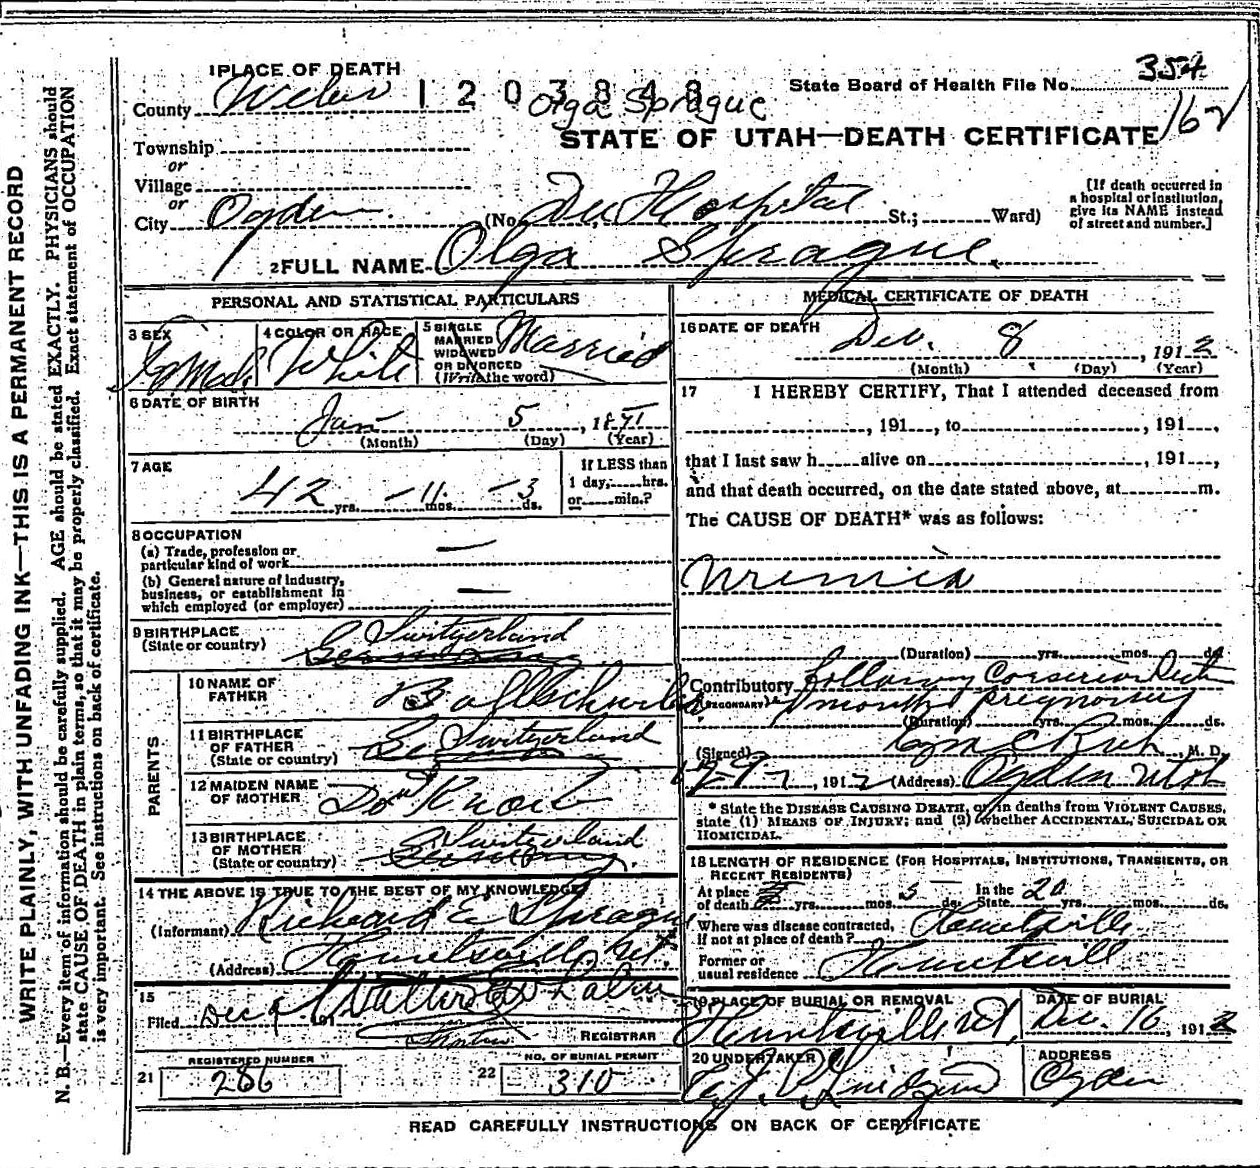 1 PLACE OF DEATH
County Weber
1203848
Olga Sprague
State Board of Health File No. 354
162
STATE OF UTAH—DEATH CERTIFICATE
Township
or
Village
or
City Ogden (No. Dee Hospital St.; Ward)
[If death occurred in a hospital or institution, give its NAME instead of street and number.]
2 FULL NAME Olga Sprague.
PERSONAL AND STATISTICAL PARTICULARS
3 SEX Female
4 COLOR OR RACE White
5 SINGLE MARRIED WIDOWED OR DIVORCED (Write the word) Married
6 DATE OF BIRTH
Jan 5, 1871
(Month) (Day) (Year)
7 AGE
42 yrs. 11 mos. 3 ds.
If LESS than 1 day, hrs. or min.?
8 OCCUPATION
(a) Trade, profession or particular kind of work —
(b) General nature of industry, business, or establishment in which employed (or employer) —
9 BIRTHPLACE (State or country) Switzerland Germany
PARENTS
10 NAME OF FATHER
11 BIRTHPLACE OF FATHER (State or country) Switzerland
12 MAIDEN NAME OF MOTHER
13 BIRTHPLACE OF MOTHER (State or country) Switzerland Germany
14 THE ABOVE IS TRUE TO THE BEST OF MY KNOWLEDGE
(Informant) Richard E Sprague
(Address) Huntsville Ut.
15
Filed Dec 9 REGISTRAR
REGISTERED NUMBER
21 286
NO. OF BURIAL PERMIT
22 310
MEDICAL CERTIFICATE OF DEATH
16 DATE OF DEATH
Dec. 8, 1912
(Month) (Day) (Year)
17 I HEREBY CERTIFY, That I attended deceased from
, 191 , to , 191 ,
that I last saw h alive on , 191 ,
and that death occurred, on the date stated above, at m.
The CAUSE OF DEATH* was as follows:
Uremia
(Duration) yrs. mos. ds.
Contributory following
(SECONDARY) months pregnancy
(Duration) yrs. mos. ds.
(Signed) E Rich, M. D.
1912 (Address) Ogden Utah
* State the DISEASE CAUSING DEATH, or in deaths from VIOLENT CAUSES, state (1) MEANS OF INJURY; and (2) whether ACCIDENTAL, SUICIDAL OR HOMICIDAL.
18 LENGTH OF RESIDENCE (FOR HOSPITALS, INSTITUTIONS, TRANSIENTS, OR RECENT RESIDENTS)
At place of death yrs. mos. 5 ds. In the State 20 yrs. mos. ds.
Where was disease contracted, if not at place of death? Huntsville
Former or usual residence Huntsville
19 PLACE OF BURIAL OR REMOVAL
Huntsville Ut.
DATE OF BURIAL
Dec. 10, 1912
20 UNDERTAKER
ADDRESS
Ogden
READ CAREFULLY INSTRUCTIONS ON BACK OF CERTIFICATE
WRITE PLAINLY, WITH UNFADING INK—THIS IS A PERMANENT RECORD
N. B.—Every item of information should be carefully supplied. AGE should be stated EXACTLY. PHYSICIANS should
state CAUSE OF DEATH in plain terms, so that it may be properly classified. Exact statement of OCCUPATION
is very important. See instructions on back of certificate.